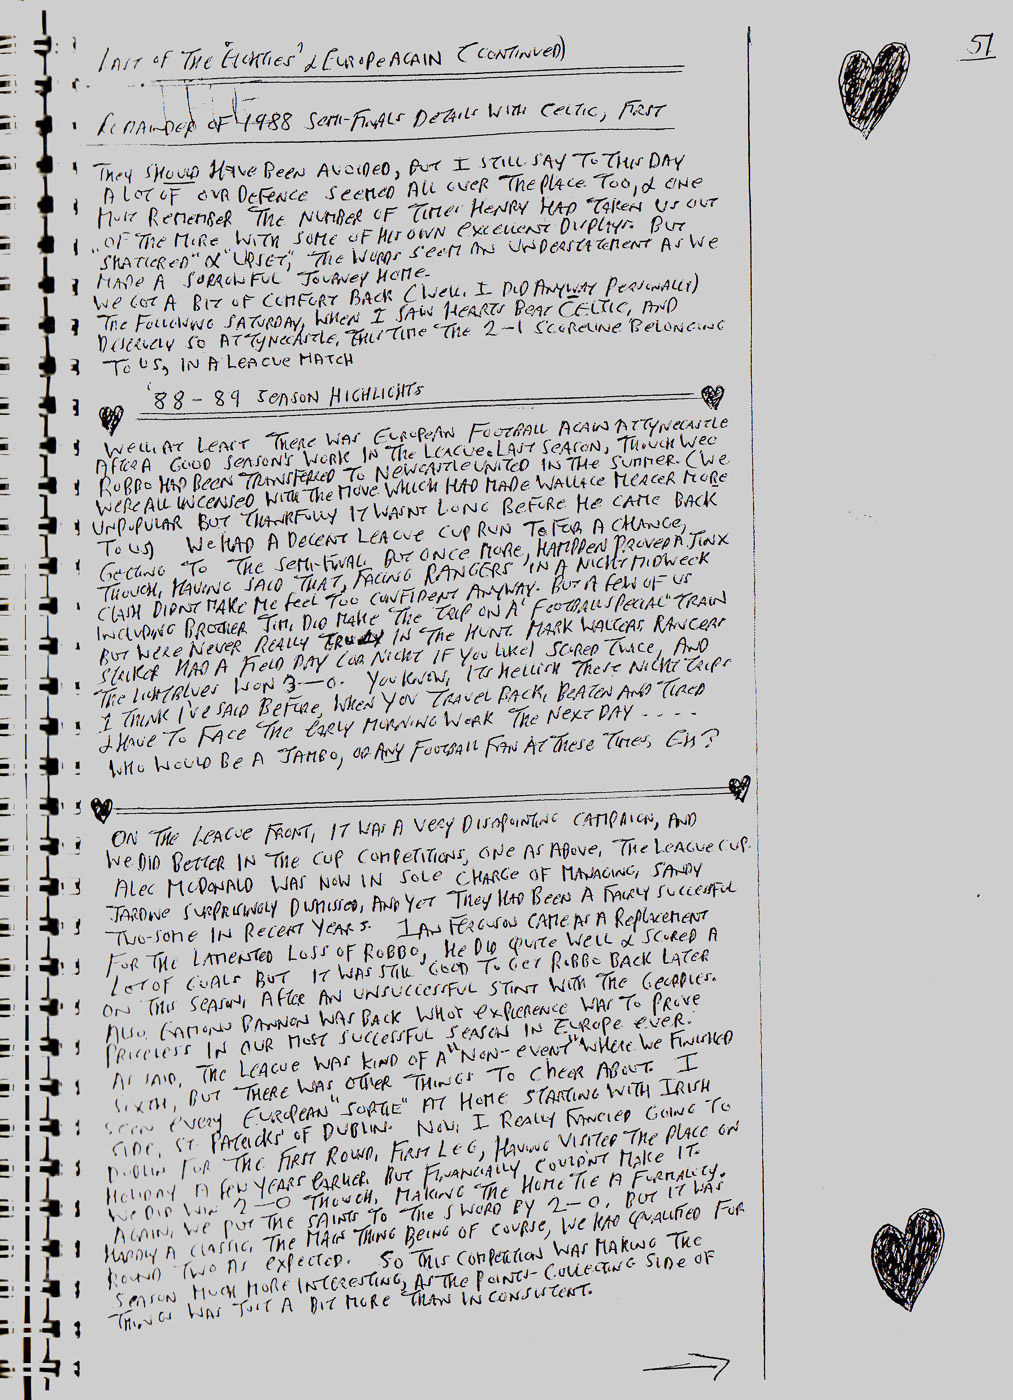 51
LAST OF THE 'EIGHTIES' & EUROPE AGAIN (CONTINUED)
REMAINDER OF 1988 SEMI-FINALS DETAILS WITH CELTIC, FIRST
THEY SHOULD HAVE BEEN AVOIDED, BUT I STILL SAY TO THIS DAY
A LOT OF OUR DEFENCE SEEMED ALL OVER THE PLACE TOO, & ONE
MUST REMEMBER THE NUMBER OF TIMES HENRY HAD TAKEN US OUT
OF THE MIRE WITH SOME OF HIS OWN EXCELLENT DISPLAYS. BUT
"SHATTERED" & "UPSET", THE WORDS SEEM AN UNDERSTATEMENT AS WE
MADE A SORROWFUL JOURNEY HOME.
WE GOT A BIT OF COMFORT BACK (WELL, I DID ANYWAY PERSONALLY)
THE FOLLOWING SATURDAY, WHEN I SAW HEARTS BEAT CELTIC, AND
DESERVELY SO AT TYNECASTLE, THIS TIME THE 2-1 SCORELINE BELONGING
TO US, IN A LEAGUE MATCH
'88-89 SEASON HIGHLIGHTS
WELL, AT LEAST THERE WAS EUROPEAN FOOTBALL AGAIN AT TYNECASTLE
AFTER A GOOD SEASON'S WORK IN THE LEAGUE LAST SEASON, THOUGH WEE
ROBBO HAD BEEN TRANSFERRED TO NEWCASTLE UNITED IN THE SUMMER. (WE
WERE ALL INCENSED WITH THE MOVE WHICH HAD MADE WALLACE MERCER MORE
UNPOPULAR BUT THANKFULLY IT WASNT LONG BEFORE HE CAME BACK
TO US) WE HAD A DECENT LEAGUE CUP RUN TO FOR A CHANGE,
GETTING TO THE SEMI-FINAL BUT ONCE MORE, HAMPDEN PROVED A JINX
THOUGH, HAVING SAID THAT, FACING RANGERS IN A NIGHT MIDWEEK
CLASH DIDNT MAKE ME FEEL TOO CONFIDENT ANYWAY. BUT A FEW OF US
INCLUDING BROTHER JIM, DID MAKE THE TRIP ON A "FOOTBALL SPECIAL" TRAIN
BUT WERE NEVER REALLY IN THE HUNT. MARK WALTERS RANGERS
STRIKER HAD A FIELD DAY (OR NIGHT IF YOU LIKE) SCORED TWICE, AND
THE LIGHTBLUES WON 3-0. YOU KNOW, ITS HELLISH THESE NIGHT TRIPS
I THINK I'VE SAID BEFORE, WHEN YOU TRAVEL BACK, BEATEN AND TIRED
& HAVE TO FACE THE EARLY MORNING WORK THE NEXT DAY - - - -
WHO WOULD BE A JAMBO, OR ANY FOOTBALL FAN AT THESE TIMES, EH?
ON THE LEAGUE FRONT, IT WAS A VERY DISAPOINTING CAMPAIGN, AND
WE DID BETTER IN THE CUP COMPETITIONS, ONE AS ABOVE, THE LEAGUE CUP.
ALEC MCDONALD WAS NOW IN SOLE CHARGE OF MANAGING, SANDY
JARDINE SURPRISINGLY DISMISSED, AND YET THEY HAD BEEN A FAIRLY SUCCESSFUL
TWO-SOME IN RECENT YEARS. IAN FERGUSON CAME AS A REPLACEMENT
FOR THE LAMENTED LOSS OF ROBBO, HE DID QUITE WELL & SCORED A
LOT OF GOALS BUT IT WAS STILL GOOD TO GET ROBBO BACK LATER
ON THIS SEASON, AFTER AN UNSUCCESSFUL STINT WITH THE GEORDIES.
ALSO EAMONN BANNON WAS BACK WHOSE EXPERIENCE WAS TO PROVE
PRICELESS IN OUR MOST SUCCESSFUL SEASON IN EUROPE EVER.
AS SAID, THE LEAGUE WAS KIND OF A "NON-EVENT" WHERE WE FINISHED
SIXTH, BUT THERE WAS OTHER THINGS TO CHEER ABOUT. I
SEEN EVERY EUROPEAN "SORTIE" AT HOME STARTING WITH IRISH
SIDE, ST. PATRICKS' OF DUBLIN. NOW, I REALLY FANCIED GOING TO
DUBLIN FOR THE FIRST ROUND, FIRST LEG, HAVING VISITED THE PLACE ON
HOLIDAY A FEW YEARS EARLIER. BUT FINANCIALLY, COULDN'T MAKE IT.
WE DID WIN 2-0 THOUGH, MAKING THE HOME TIE A FORMALITY.
AGAIN, WE PUT THE SAINTS TO THE SWORD BY 2-0. BUT IT WAS
HARDLY A CLASSIC, THE MAIN THING BEING OF COURSE, WE HAD QUALIFIED FOR
ROUND TWO AS EXPECTED. SO THIS COMPETITION WAS MAKING THE
SEASON MUCH MORE INTERESTING, AS THE POINTS-COLLECTING SIDE OF
THINGS WAS JUST A BIT MORE THAN INCONSISTENT.